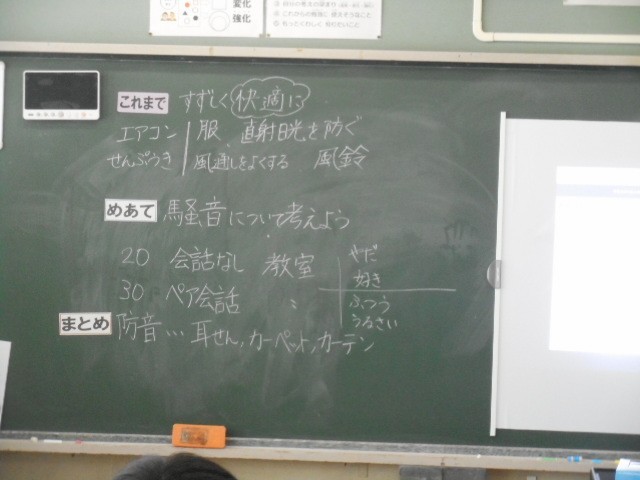 変化
強化
これまで すずしく 快適に
エアコン 服 直射日光を防ぐ
せんぷうき 風通しをよくする 風鈴
めあて 騒音について考えよう
20 会話なし 教室 やだ
好き
30 ペア会話 〃 ふつう
うるさい
まとめ 防音…耳せん,カーペット,カーテン